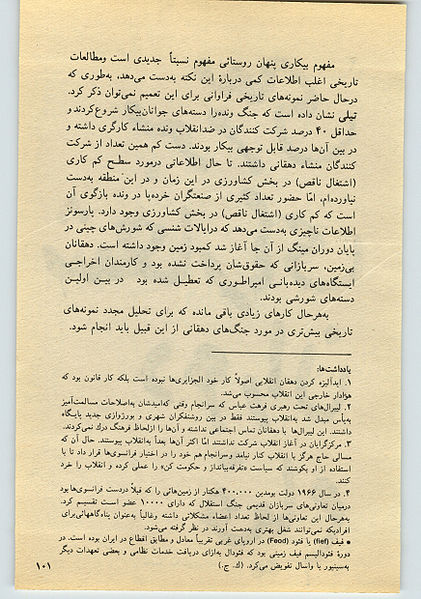 مفهوم بیکاری پنهان روستائی مفهوم نسبتاً جدیدی است ومطالعات
تاریخی اغلب اطلاعات کمی دربارهٔ این نکته به‌دست می‌دهد، به‌طوری که
درحال حاضر نمونه‌های تاریخی فراوانی برای این تعمیم نمی‌توان ذکر کرد.
تیلی نشان داده است که جنگ وندهرا دسته‌های جوانان‌بیکار شروع‌کردند و
حداقل ۴۰ درصد شرکت کنندگان در ضدانقلاب ونده منشاء کارگری داشته و
در بین آن‌ها درصد قابل توجهی بیکار بودند. دست کم همین تعداد از شرکت
کنندگان منشاء دهقانی داشتند. تا حال اطلاعاتی درمورد سطح کم کاری
(اشتغال ناقص) در بخش کشاورزی در این زمان و در این منطقه به‌دست
نیاورده‌ام، امّا حضور تعداد کثیری از صنعتگران خرده‌پا در ونده بازگوی آن
است که کم کاری (اشتغال ناقص) در بخش کشاورزی وجود دارد. پارسونز
اطلاعات ناچیزی به‌دست می‌دهد که درایالات شنسی که شورش‌های چینی در
پایان دوران مینگ از آن جا آغاز شد کمبود زمین وجود داشته است. دهقانان
بی‌زمین، سربازانی که حقوق‌شان پرداخت نشده بود و کارمندان اخراجی
ایستگاه‌های دیده‌بانی امپراطوری که تعطیل شده بود در بین اولین
دسته‌های شورشی بودند.
به‌هرحال کارهای زیادی باقی مانده که برای تحلیل مجدد نمونه‌های
تاریخی بیش‌تری در مورد جنگ‌های دهقانی از این قبیل باید انجام شود.
یادداشت‌ها:
۱. ایدآلیزه کردن دهقان انقلابی اصولاً کار خود الجزایری‌ها نبوده است بلکه کار قانون بود که
هوادار خارجی این انقلاب محسوب می‌شد.
۲. لیبرال‌های تحت رهبری فرهت عباس که سرانجام وقتی که‌امیدشان به‌اصلاحات مسالمت‌آمیز
به‌یأس مبدل شد به‌انقلاب پیوستند فقط در بین روشنفکران شهری و بورژوازی جدید پایگاه
داشتند. این لیبرال‌ها با دهقانان تماس اجتماعی نداشته و آن‌ها را ازلحاظ فرهنگ درک نمی‌کردند.
۳. مرکزگرایان در آغاز انقلاب شرکت نداشتند امّا اکثر آن‌ها بعداً به‌انقلاب پیوستند. حال آن که
مسالی حاج هرگز با انقلاب کنار نیامد وسرانجام هم خود را در اختیار فرانسوی‌ها قرار داد تا با
استفاده از او بکوشند که سیاست «تفرقه‌بیانداز و حکومت کن» را عملی کرده و انقلاب را خرد
کنند.
۴. در سال ۱۹۶۶ دولت بومدین ۴۰۰,۰۰۰ هکتار از زمین‌هائی را که قبلاً دردست فرانسوی‌ها بود
درمیان تعاونی‌های سربازان قدیمی جنگ استقلال که دارای ۱۰۰۰۰ عضو است تقسیم کرد.
به‌هرحال این تعاونی‌ها از لحاظ تعداد اعضاء مشکلاتی داشته وغالباً به‌عنوان پناه‌گاههائی‌برای
افرادی‌که نمی‌توانند شغل بهتری به‌دست آورند در نظر گرفته می‌شود.
* فیف (fief) یا فئود (Feod) در اروپای غربی تقریباً معادل و مطابق اقطاع در ایران بوده است. در
دورهٔ فئودالیسم فیف زمینی بود که فئودال به‌ازای دریافت خدمات نظامی و بعضی تعهدات دیگر
به‌سینیور یا واسال تفویض می‌کرد. (ک. ج.)
۱۰۱